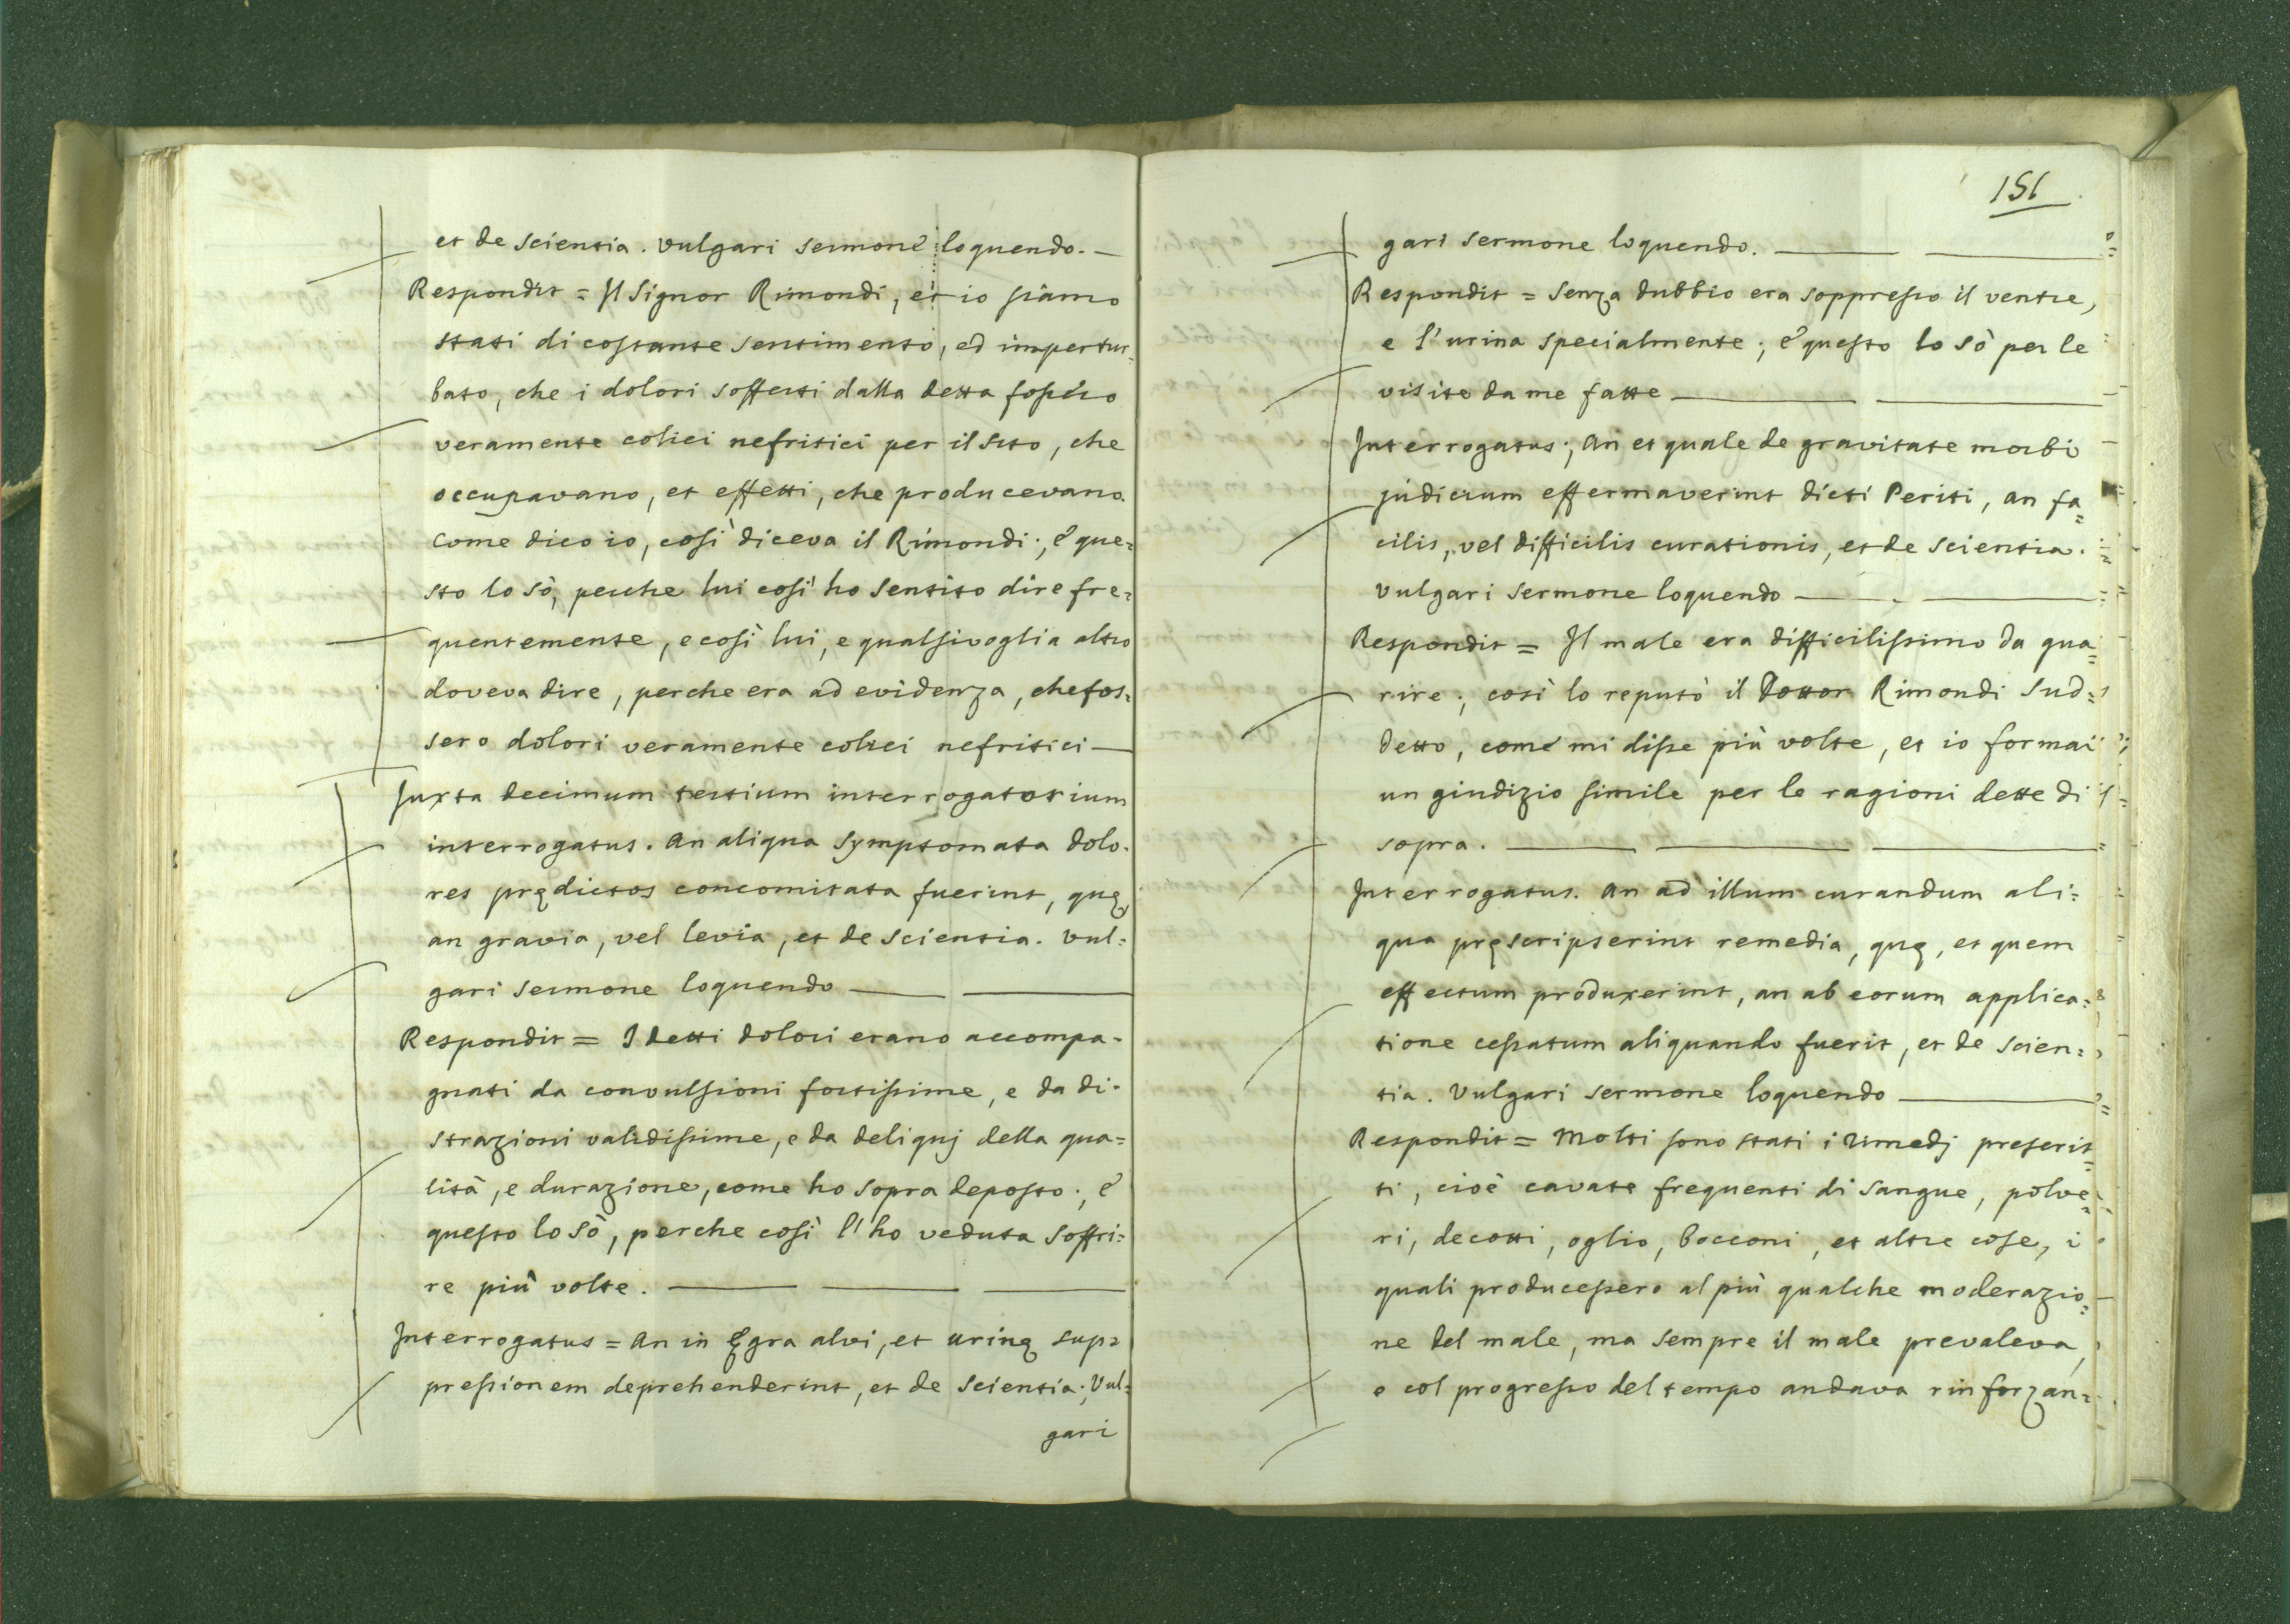 et de scientia. vulgari sermone loquendo. —
Respondit = Il Signor Rimondi, et io siamo
stati di costante sentimento, ed impertur=
bato, che i dolori sofferti dalla detta fossero
veramente colici nefritici per il sito, che
occupavano, et effetti, che producevano.
Come dico io, così diceva il Rimondi; e que=
sto lo sò, perche lui così ho sentito dire fre=
quentemente, e così lui, e qualsivoglia altro
doveva dire, perche era ad evidenza, che fos=
sero dolori veramente colici nefritici —
Juxta decimum tertium interrogatorium
interrogatus. An aliqua symptomata dolo=
res prędictos concomitata fuerint, quę,
an gravia, vel levia, et de scientia. Vul=
gari sermone loquendo — —
Respondit = I detti dolori erano accompa=
gnati da convulsioni fortissime, e da di=
strazioni validissime, e da deliquj della qua=
lità, e durazione, come ho sopra deposto; e
questo lo sò, perche così l'ho veduta soffri=
re più volte. — — —
Interrogatus = An in Ęgra alvi, et urinę sup=
pressionem deprehenderint, et de scientia; Vul=
gari
151
gari sermone loquendo. — —
Respondit = Senza dubbio era soppresso il ventre,
e l'urina specialmente; e questo lo sò per le
visite da me fatte — —
Interrogatus; An et quale de gravitate morbi
judicium effermaverint dicti Periti, an fa=
cilis, vel difficilis curationis, et de scientia.
Vulgari sermone loquendo — —
Respondit = Il male era difficilissimo da gua=
rire; così lo reputò il Dottor Rimondi Sud=
detto, come mi disse più volte, et io formai
un giudizio simile per le ragioni dette di
sopra. — — —
Interrogatus. An ad illum curandum ali=
qua pręscripserint remedia, quę, et quem
effectum produxerint, an ab eorum applica=
tione cessatum aliquando fuerit, et de scien=
tia. Vulgari sermone loquendo —
Respondit = Molti sono stati i rimedj prescrit=
ti, cioè cavate frequenti di sangue, polve=
ri, decotti, oglio, bocconi, et altre cose, i
quali producessero al più qualche moderazio=
ne del male, ma sempre il male prevaleva,
e col progresso del tempo andava rinforzan=